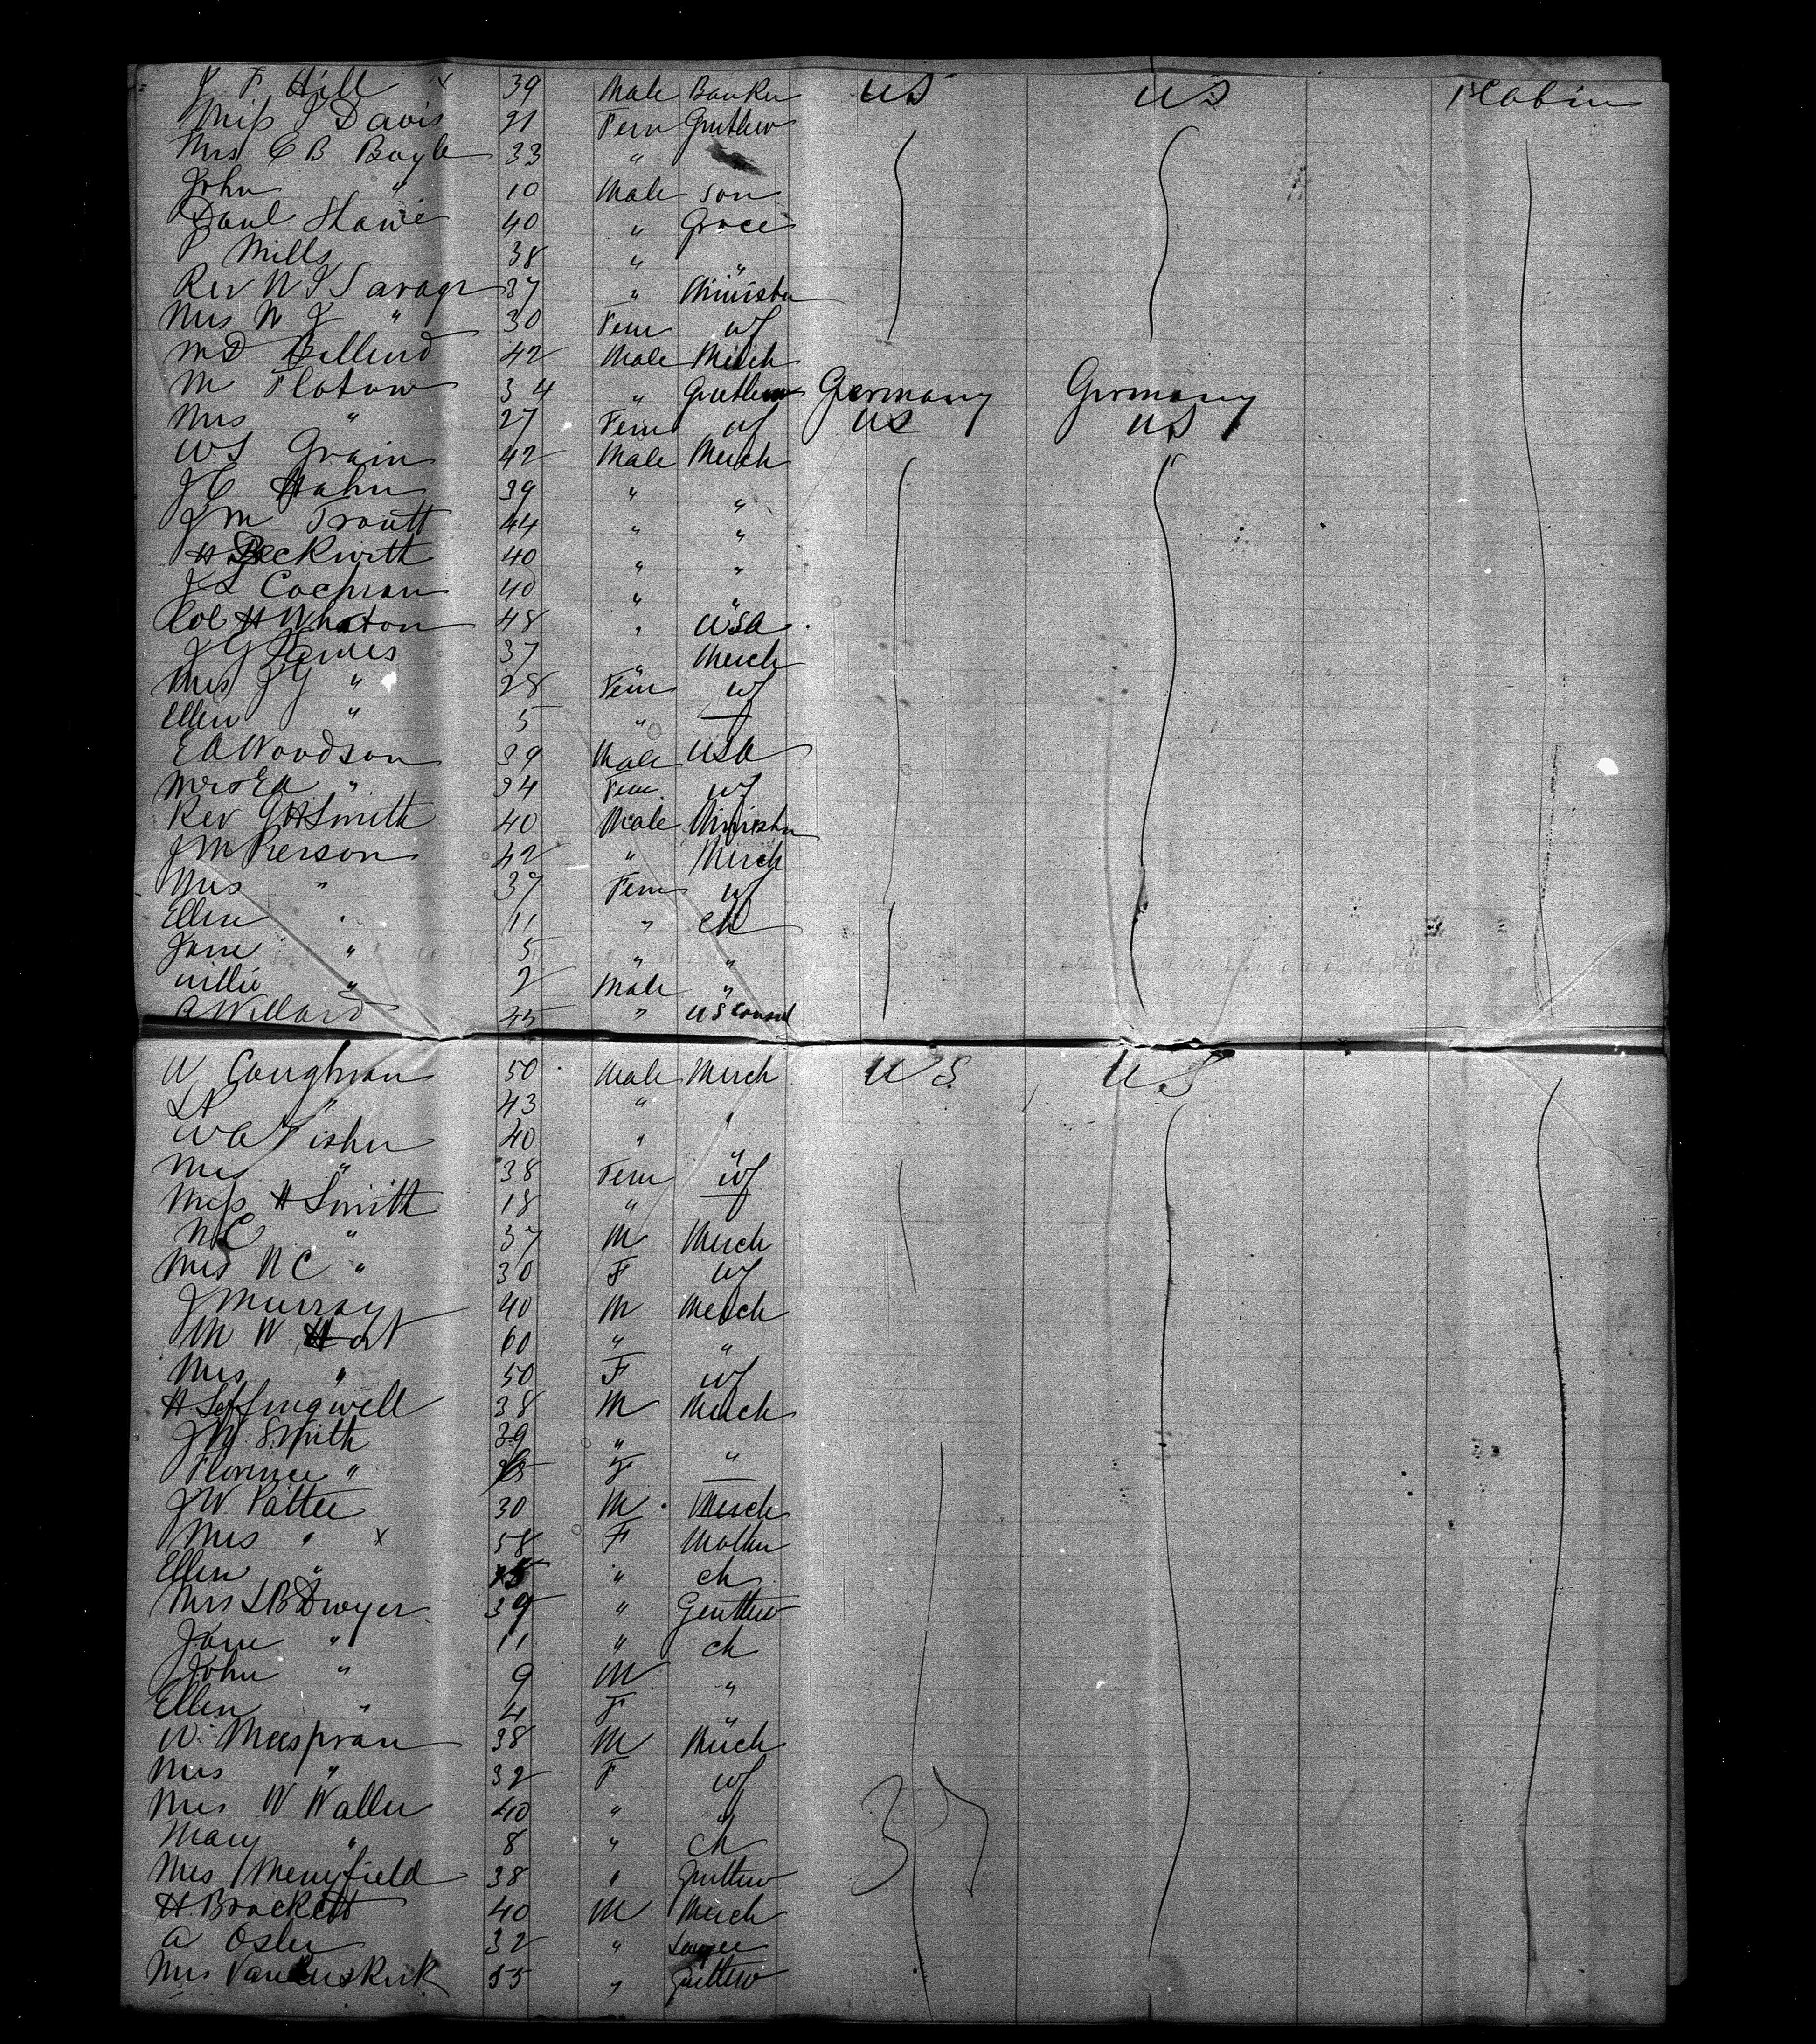 J F Hill x 39 Male Banker US US 1st Cabin
Miss J Davis 21 Fem Gentlew
Mrs C B Boyle 33 "
John " 10 Male son
Paul 40 " Grocer
P Mills 38 " "
Rev W J Savage 37 " Minister
Mrs W J " 30 Fem wf
M D 42 Male Merch
M Flatow 34 " Gentlem Germany Germany
Mrs " 27 Fem wf US US
W S Grain 42 Male Merch
J C Hahn 39 " "
J M Troutt 44 " "
H Beckwith 40 " "
J L Cochran 40 " "
Col H Whaton 48 " USA
J G James 37 " Merch
Mrs J G " 28 Fem wf
Ellen " 5 " —
E A Woodson 39 Male USA
Mrs E A " 34 Fem wf
Rev G H Smith 40 Male Minister
J M Pierson 42 " Merch
Mrs " 37 Fem wf
Ellen " 11 " ch
Jane " 5 " "
Willie " 2 Male "
A Willard 45 " US Consul
W Coughran 50 Male Merch US US
L A " 43 " "
W A Fisher 40 " "
Mrs " 38 Fem wf
Miss H Smith 18 " —
N C " 37 M Merch
Mrs N C " 30 F wf
J Murray 40 M Merch
M W 60 " "
Mrs " 50 F wf
H Leffingwell 38 M Merch
J W Smith 39 " "
Florence " F —
J W Pattee 30 M Merch
Mrs " x 58 F Mother
Ellen " " ch
Mrs L B Dwyer 39 " Gentlew
Jane " 11 " ch
John " 9 M "
Ellen " 4 F "
W 38 M Merch
Mrs " 32 F wf
Mrs W Waller 40 " "
Mary " 8 " ch
Mrs Merryfield 38 " Gentlew
H Brackett 40 M Merch
A Osler 32 "
Mrs Vanbuskirk 55 " Gentlew